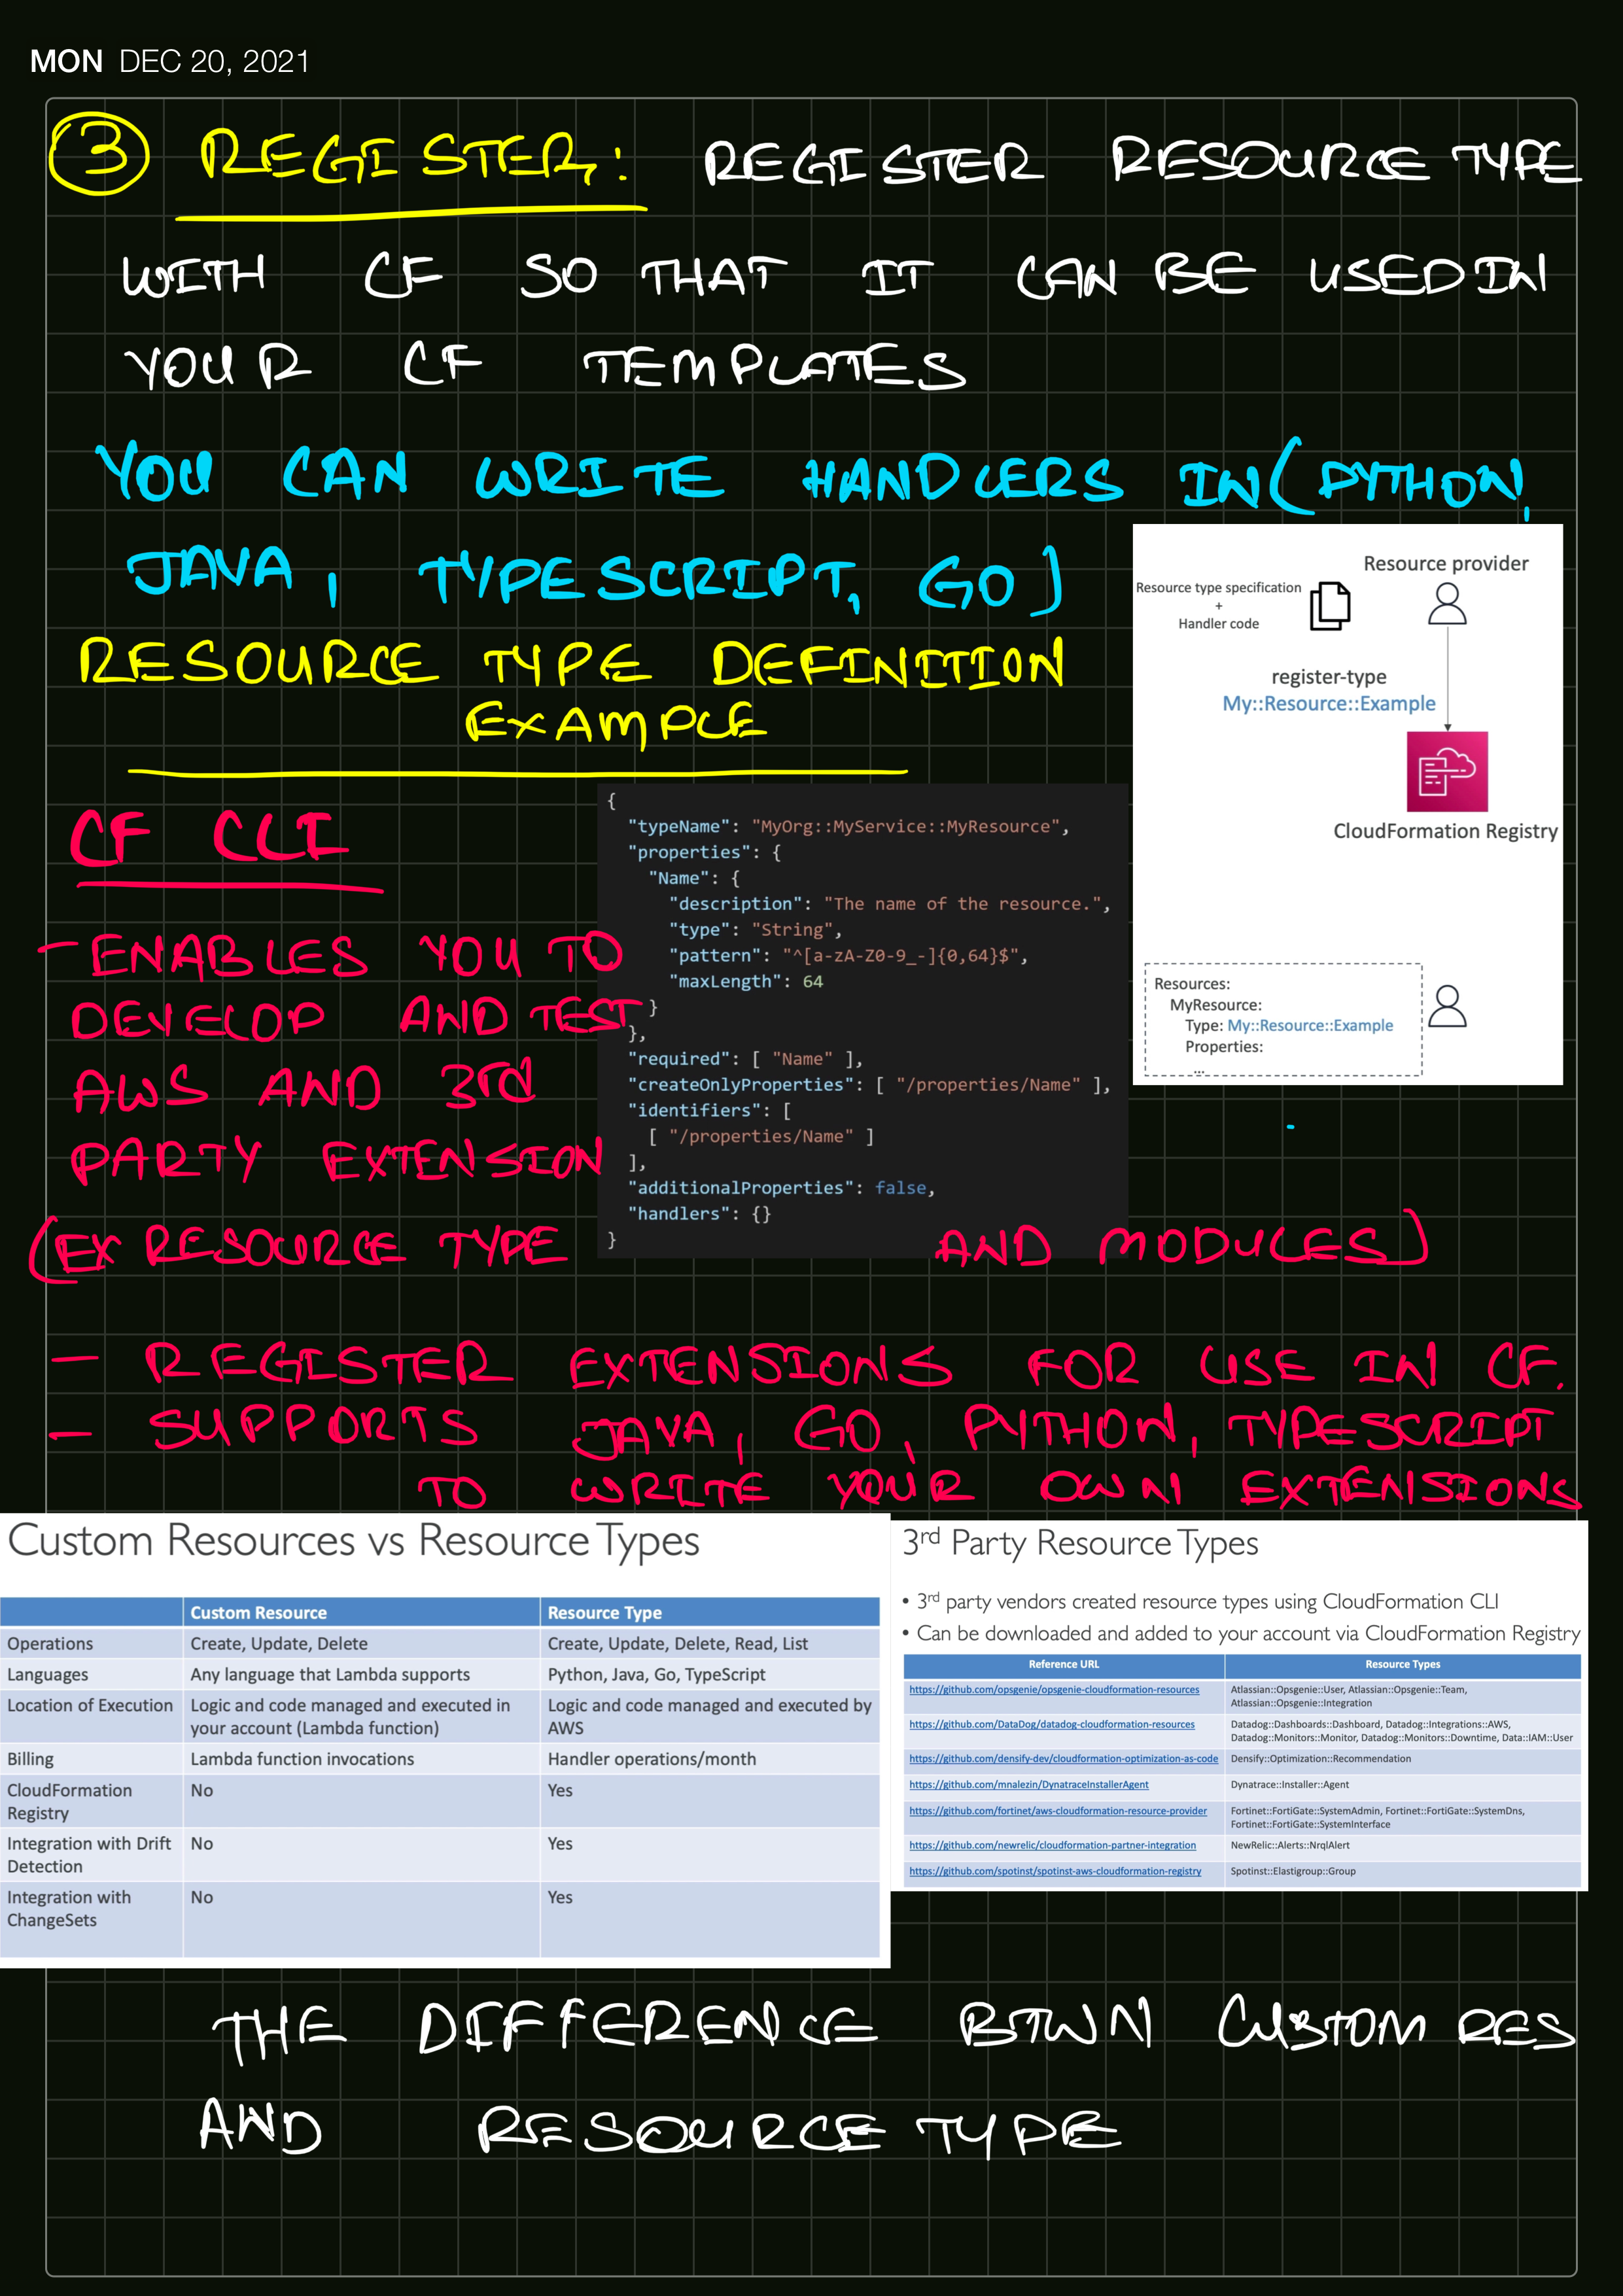 MON DEC 20, 2021
3 REGISTER: REGISTER RESOURCE TYPE
WITH CF SO THAT IT CAN BE USED IN
YOUR CF TEMPLATES
YOU CAN WRITE HANDLERS IN (PYTHON,
JAVA, TYPESCRIPT, GO)
RESOURCE TYPE DEFINITION
EXAMPLE
Resource provider
Resource type specification
+
Handler code
register-type
My::Resource::Example
CloudFormation Registry
Resources:
MyResource:
Type: My::Resource::Example
Properties:
...
{
"typeName": "MyOrg::MyService::MyResource",
"properties": {
"Name": {
"description": "The name of the resource.",
"type": "String",
"pattern": "^[a-zA-Z0-9_-]{0,64}$",
"maxLength": 64
}
},
"required": [ "Name" ],
"createOnlyProperties": [ "/properties/Name" ],
"identifiers": [
[ "/properties/Name" ]
],
"additionalProperties": false,
"handlers": {}
}
CF CLI
- ENABLES YOU TO
DEVELOP AND TEST
AWS AND 3rd
PARTY EXTENSION
(EX RESOURCE TYPE AND MODULES)
- REGISTER EXTENSIONS FOR USE IN CF.
- SUPPORTS JAVA, GO, PYTHON, TYPESCRIPT
TO WRITE YOUR OWN EXTENSIONS
Custom Resources vs Resource Types
Custom Resource Resource Type
Operations Create, Update, Delete Create, Update, Delete, Read, List
Languages Any language that Lambda supports Python, Java, Go, TypeScript
Location of Execution Logic and code managed and executed in Logic and code managed and executed by
your account (Lambda function) AWS
Billing Lambda function invocations Handler operations/month
CloudFormation No Yes
Registry
Integration with Drift No Yes
Detection
Integration with No Yes
ChangeSets
3rd Party Resource Types
• 3rd party vendors created resource types using CloudFormation CLI
• Can be downloaded and added to your account via CloudFormation Registry
Reference URL Resource Types
https://github.com/opsgenie/opsgenie-cloudformation-resources Atlassian::Opsgenie::User, Atlassian::Opsgenie::Team,
Atlassian::Opsgenie::Integration
https://github.com/DataDog/datadog-cloudformation-resources Datadog::Dashboards::Dashboard, Datadog::Integrations::AWS,
Datadog::Monitors::Monitor, Datadog::Monitors::Downtime, Data::IAM::User
https://github.com/densify-dev/cloudformation-optimization-as-code Densify::Optimization::Recommendation
https://github.com/mnalezin/DynatraceInstallerAgent Dynatrace::Installer::Agent
https://github.com/fortinet/aws-cloudformation-resource-provider Fortinet::FortiGate::SystemAdmin, Fortinet::FortiGate::SystemDns,
Fortinet::FortiGate::SystemInterface
https://github.com/newrelic/cloudformation-partner-integration NewRelic::Alerts::NrqlAlert
https://github.com/spotinst/spotinst-aws-cloudformation-registry Spotinst::Elastigroup::Group
THE DIFFERENCE BTWN CUSTOM RES
AND RESOURCE TYPE